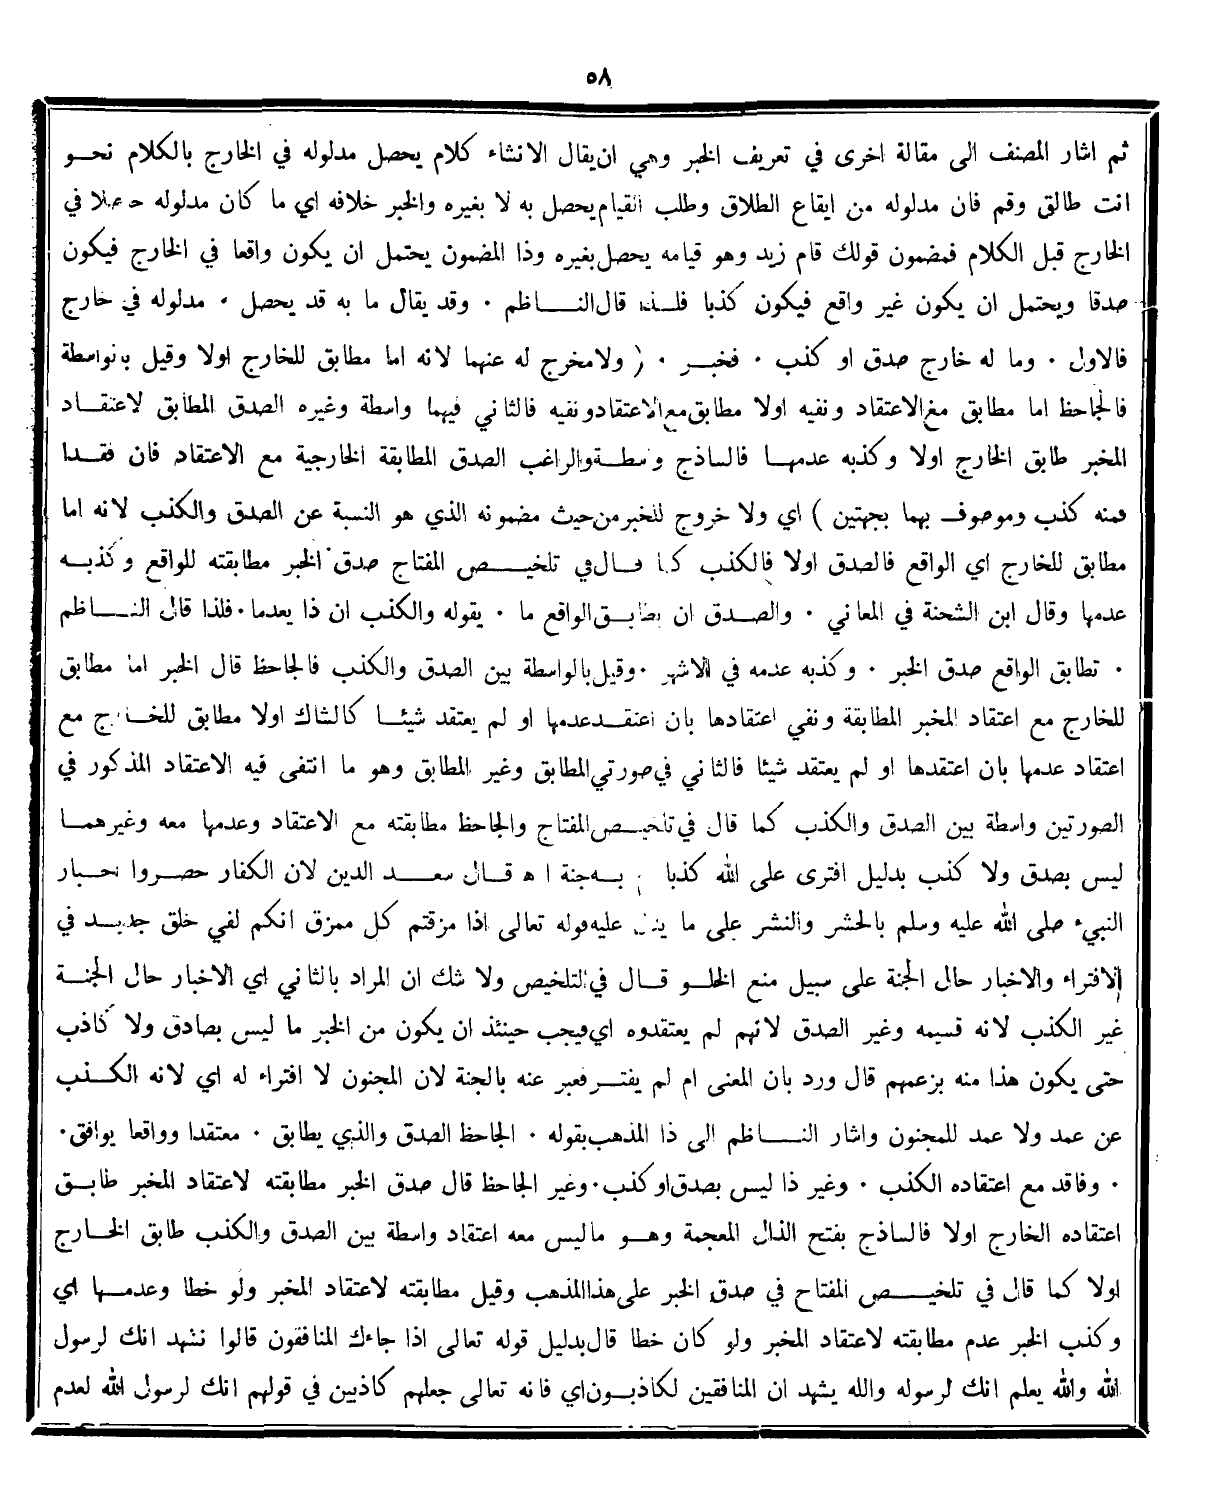 ٥٨
ثم اشار المصنف الى مقالة اخرى في تعريف الخبر وهي ان يقال الانشاء كلام يحصل مدلوله في الخارج بالكلام نحو
انت طالق وقم فان مدلوله من ايقاع الطلاق وطلب القيام يحصل به لا بغيره والخبر خلافه اي ما كان مدلوله حاصلا في
الخارج قبل الكلام فمضمون قولك قام زيد وهو قيامه يحصل بغيره وذا المضمون يحتمل ان يكون واقعا في الخارج فيكون
صدقا ويحتمل ان يكون غير واقع فيكون كذبا فلذا قال الناظم ٠ وقد يقال ما به قد يحصل ٠ مدلوله في خارج
فالاول ٠ وما له خارج صدق او كذب ٠ فخبر ٠ ( ولا مخرج له عنهما لانه اما مطابق للخارج اولا وقيل بالواسطة
فالجاحظ اما مطابق مع الاعتقاد ونفيه اولا مطابق مع الاعتقاد ونفيه فالثاني فيهما واسطة وغيره الصدق المطابق لاعتقاد
المخبر طابق الخارج اولا وكذبه عدمها فالساذج واسطة والراغب الصدق المطابقة الخارجية مع الاعتقاد فان فقدا
فمنه كذب وموصوف بهما بجهتين ) اي ولا خروج للخبر من حيث مضمونه الذي هو النسبة عن الصدق والكذب لانه اما
مطابق للخارج اي الواقع فالصدق اولا فالكذب كما قال في تلخيص المفتاح صدق الخبر مطابقته للواقع وكذبه
عدمها وقال ابن الشحنة في المعاني ٠ والصدق ان يطابق الواقع ما ٠ يقوله والكذب ان ذا يعدما ٠ فلذا قال الناظم
٠ تطابق الواقع صدق الخبر ٠ وكذبه عدمه في الاشهر ٠ وقيل بالواسطة بين الصدق والكذب فالجاحظ قال الخبر اما مطابق
للخارج مع اعتقاد المخبر المطابقة ونفي اعتقادها بان اعتقد عدمها او لم يعتقد شيئا كالشاك اولا مطابق للخارج مع
اعتقاد عدمها بان اعتقدها او لم يعتقد شيئا فالثاني في صورتي المطابق وغير المطابق وهو ما انتفى فيه الاعتقاد المذكور في
الصورتين واسطة بين الصدق والكذب كما قال في تلخيص المفتاح والجاحظ مطابقته مع الاعتقاد وعدمها معه وغيرهما
ليس بصدق ولا كذب بدليل افترى على الله كذبا به جنة اه قال سعد الدين لان الكفار حصروا اخبار
النبيء صلى الله عليه وسلم بالحشر والنشر على ما يدل عليه قوله تعالى اذا مزقتم كل ممزق انكم لفي خلق جديد في
الافتراء والاخبار حال الجنة على سبيل منع الخلو قال في التلخيص ولا شك ان المراد بالثاني اي الاخبار حال الجنة
غير الكذب لانه قسيمه وغير الصدق لانهم لم يعتقدوه اي فيجب حينئذ ان يكون من الخبر ما ليس بصادق ولا كاذب
حتى يكون هذا منه بزعمهم قال ورد بان المعنى ام لم يفتر فعبر عنه بالجنة لان المجنون لا افتراء له اي لانه الكذب
عن عمد ولا عمد للمجنون واشار الناظم الى ذا المذهب بقوله ٠ الجاحظ الصدق والذي يطابق ٠ معتقدا وواقعا يوافق ٠
٠ وفاقد مع اعتقاده الكذب ٠ وغير ذا ليس بصدق او كذب ٠ وغير الجاحظ قال صدق الخبر مطابقته لاعتقاد المخبر طابق
اعتقاده الخارج اولا فالساذج بفتح الذال المعجمة وهو ما ليس معه اعتقاد واسطة بين الصدق والكذب طابق الخارج
اولا كما قال في تلخيص المفتاح في صدق الخبر على هذا المذهب وقيل مطابقته لاعتقاد المخبر ولو خطا وعدمها اي
وكذب الخبر عدم مطابقته لاعتقاد المخبر ولو كان خطا قال بدليل قوله تعالى اذا جاءك المنافقون قالوا نشهد انك لرسول
الله والله يعلم انك لرسوله والله يشهد ان المنافقين لكاذبون اي فانه تعالى جعلهم كاذبين في قولهم انك لرسول الله لعدم